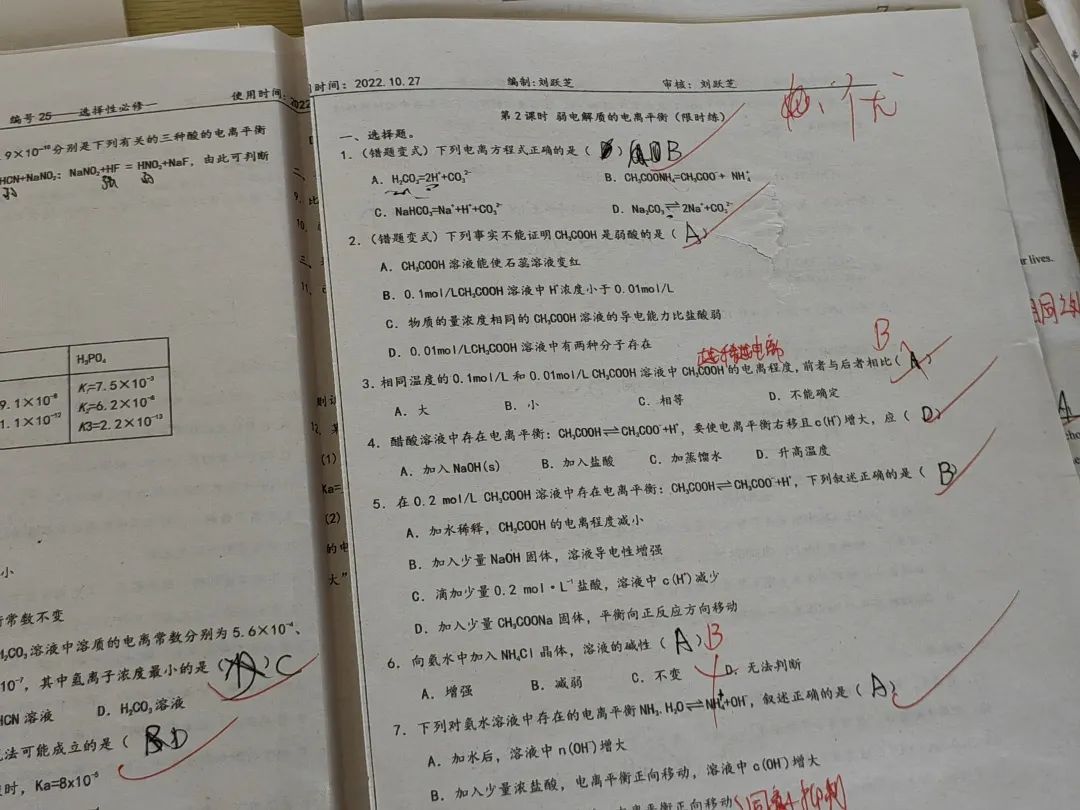 编号 25——选择性必修一 使用时间: 2022
.9×10⁻¹⁰分别是下列有关的三种酸的电离平衡
HCN+NaNO₂; NaNO₂+HF = HNO₂+NaF, 由此可判断
弱 强 弱
H₃PO₄
9.1×10⁻⁸
1.1×10⁻¹²
K₁=7.5×10⁻³
K₂=6.2×10⁻⁸
K3=2.2×10⁻¹³
小
衡常数不变
H₂CO₃溶液中溶质的电离常数分别为 5.6×10⁻⁴、
10⁻⁷, 其中氢离子浓度最小的是( A )C
HCN 溶液 D. H₂CO₃溶液
说法可能成立的是( BD
时, Ka=8x10⁻⁵
9. 比
10.
三、
11.
则
12. 某
(1)
Ka=
(2)
的电
大”
时间: 2022.10.27 编制:刘跃芝 审核: 刘跃芝
第 2 课时 弱电解质的电离平衡(限时练)
一、选择题。
1.(错题变式)下列电离方程式正确的是( ) B
A. H₂CO₃=2H⁺+CO₃²⁻ B. CH₃COONH₄=CH₃COO⁻+ NH₄⁺
C. NaHCO₃=Na⁺+H⁺+CO₃²⁻ D. Na₂CO₃⇌2Na⁺+CO₃²⁻
2.(错题变式)下列事实不能证明 CH₃COOH 是弱酸的是( A )
A. CH₃COOH 溶液能使石蕊溶液变红
B. 0.1mol/LCH₃COOH 溶液中 H⁺浓度小于 0.01mol/L
C. 物质的量浓度相同的 CH₃COOH 溶液的导电能力比盐酸弱
D. 0.01mol/LCH₃COOH 溶液中有两种分子存在
B
3.相同温度的 0.1mol/L 和 0.01mol/L CH₃COOH 溶液中 CH₃COOH 的电离程度,前者与后者相比( A )
A. 大 B. 小 C. 相等 D. 不能确定
4. 醋酸溶液中存在电离平衡: CH₃COOH⇌CH₃COO⁻+H⁺, 要使电离平衡右移且 c(H⁺)增大, 应( D )
A. 加入 NaOH(s) B. 加入盐酸 C. 加蒸馏水 D. 升高温度
5. 在 0.2 mol/L CH₃COOH 溶液中存在电离平衡: CH₃COOH⇌CH₃COO⁻+H⁺, 下列叙述正确的是( B )
A. 加水稀释, CH₃COOH 的电离程度减小
B. 加入少量 NaOH 固体, 溶液导电性增强
C. 滴加少量 0.2 mol·L⁻¹盐酸, 溶液中 c(H⁺)减少
D. 加入少量 CH₃COONa 固体, 平衡向正反应方向移动
6. 向氨水中加入 NH₄Cl 晶体, 溶液的碱性( A )B
A. 增强 B. 减弱 C. 不变 D. 无法判断
7. 下列对氨水溶液中存在的电离平衡 NH₃.H₂O⇌NH₄⁺+OH⁻, 叙述正确的是( A )
A. 加水后, 溶液中 n(OH⁻)增大
B. 加入少量浓盐酸, 电离平衡正向移动, 溶液中 c(OH⁻)增大
电离平衡正向移动
r lives.